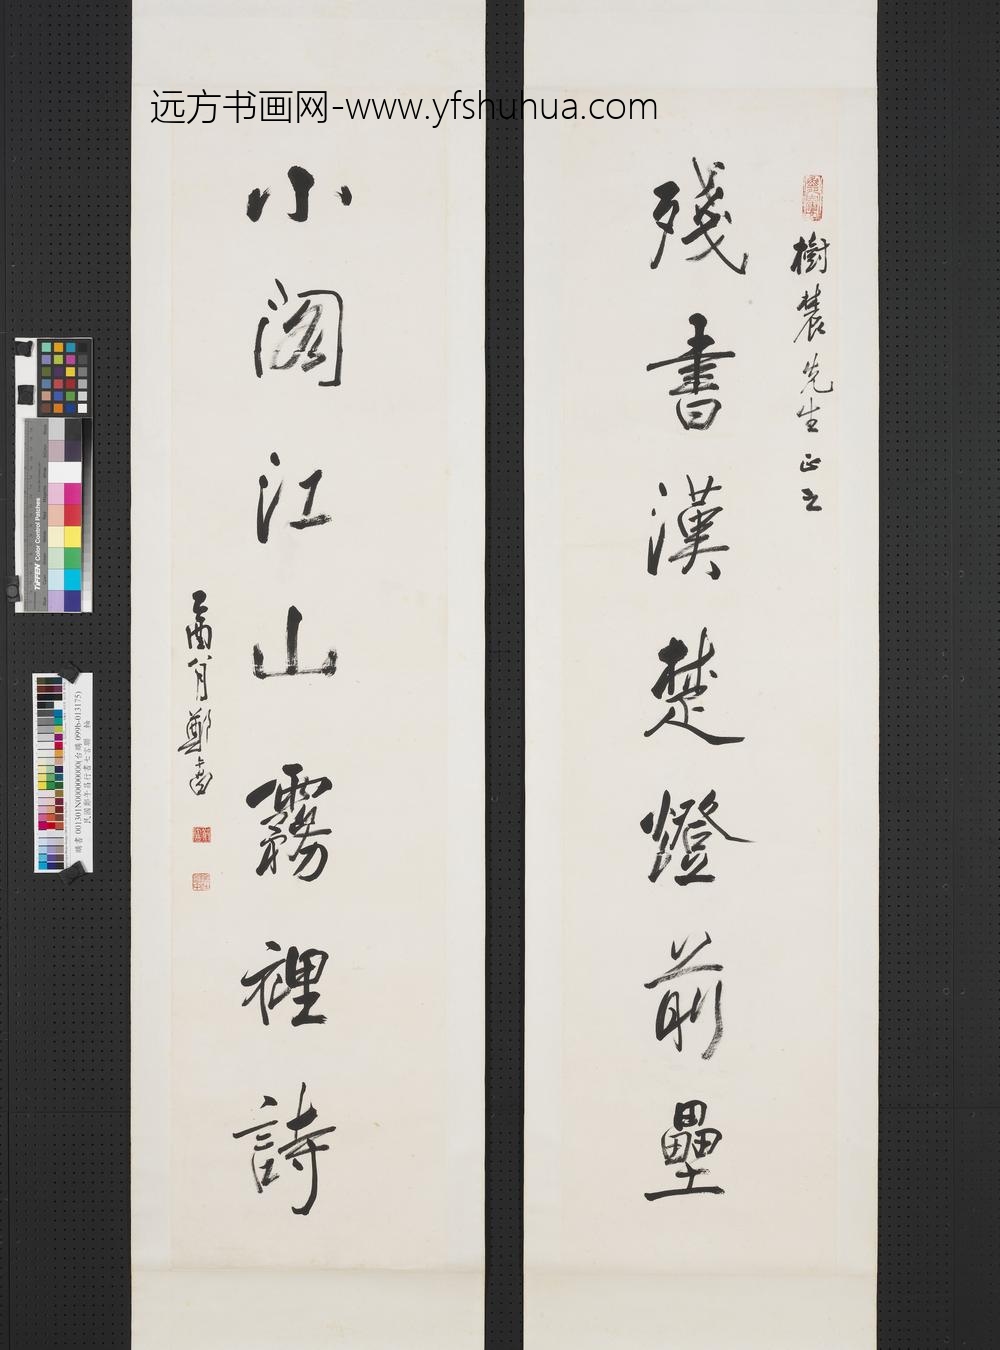 远方书画网-www.yfshuhua.com
樹蓂先生正之
殘書漢楚燈前壘
小閣江山霧裡詩
乙酉八月鄭曼青
TIFFEN Color Control Patches
購書 001301N000000000(台購 0996-013175)
民國鄭午昌行書七言聯 軸